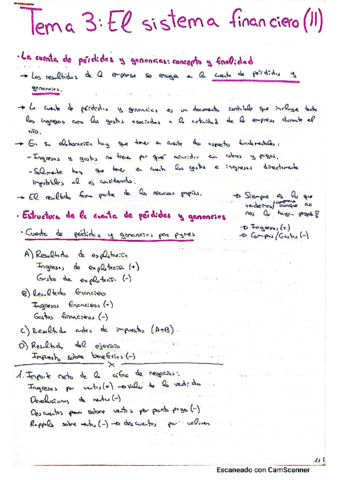 Tema 3: El sistema financiero (II)
· La cuenta de pérdidas y ganancias: concepto y finalidad
→ Los resultados de la empresa se recogen en la cuenta de pérdidas y
ganancias.
→ La cuenta de pérdidas y ganancias es un documento contable que incluye todos
los ingresos con los gastos asociados a la actividad de la empresa durante el
año.
→ En su elaboración hay que tener en cuenta dos aspectos fundamentales:
- Ingresos y gastos no tiene por qué coincidir con cobros y pagos.
- Solamente hay que tener en cuenta los gastos e ingresos directamente
imputables al ej.
→ El resultado forma parte de los recursos propios.
→ Siempre es lo que
vendemos/ aunque no
nos lo hayan
→ Ingresos (+)
→ Compras/Gastos (-)
· Estructura de la cuenta de pérdidas y ganancias
· Cuenta de pérdidas y ganancias por pymes
A) Resultado de explotación
Ingresos de explotación (+)
Gastos de explotación (-)
B) Resultado financiero
Ingresos financieros (+)
Gastos financieros (-)
C) Resultado antes de impuestos (A+B)
D) Resultado del ejercicio
Impuesto sobre beneficios (-)
1. Importe neto de la cifra de negocios:
Ingresos por ventas (+) → valor de lo vendido
Devoluciones de ventas (-)
Descuentos sobre ventas por pronto pago (-)
Rappels sobre ventas (-) → descuentos por volumen
Escaneado con CamScanner